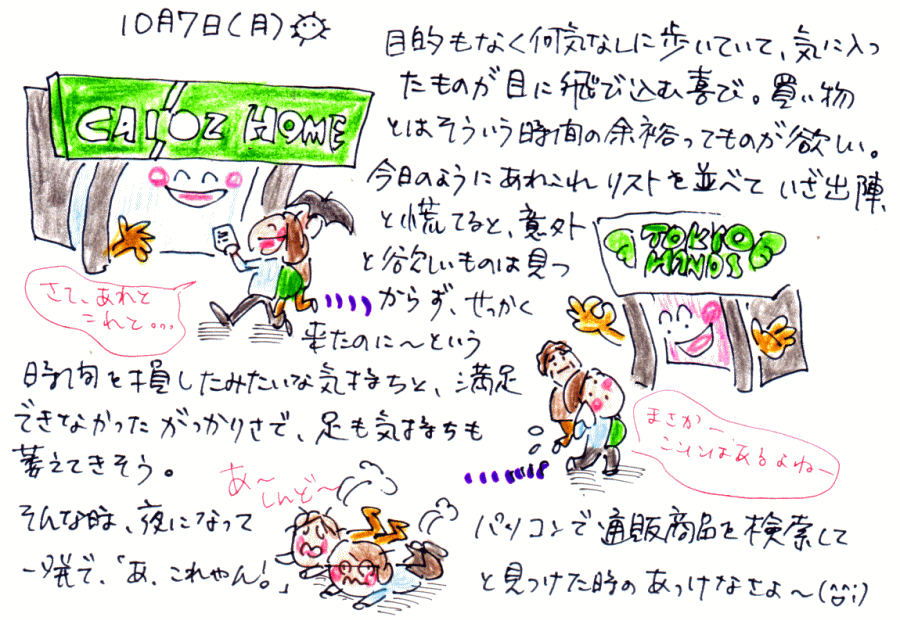 10月7日(月)
目的もなく何気なしに歩いていて、気に入っ
たものが目に飛び込む喜び。買い物
とはそういう時間の余裕ってものが欲しい。
今日のようにあれこれリストを並べていざ出陣
と慌てると、意外
と欲しいものは見つ
からず、せっかく
来たのに〜という
時間を損したみたいな気持ちと、満足
できなかったがっかりさで、足も気持ちも
萎えてきそう。
そんな時、夜になって
パソコンで通販商品を検索して
一発で、「あ、これやん!」
と見つけた時のあっけなさよ〜(^^;)
CAINZ HOME
さて、あれと
これと...
TOKYO
HANDS
まさかー
ここにはあるよねー
あ〜
しんど〜